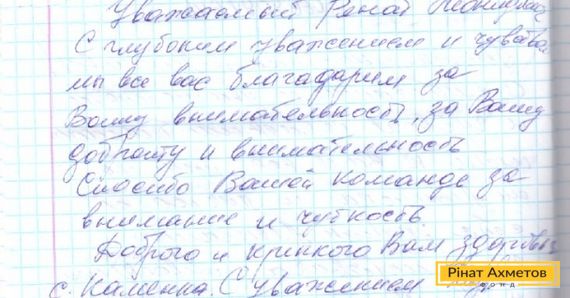 Уважаемый Ренат Леонидович
С глубоким уважением и чувства
мы все вас благодарим за
Вашу внимательность, за Вашу
доброту и внимательность
Спасибо Вашей команде за
внимание и чуткость.
Доброго и крипкого Вам здоровья
с. Каменка С уважением
Рінат Ахметов
ФОНД